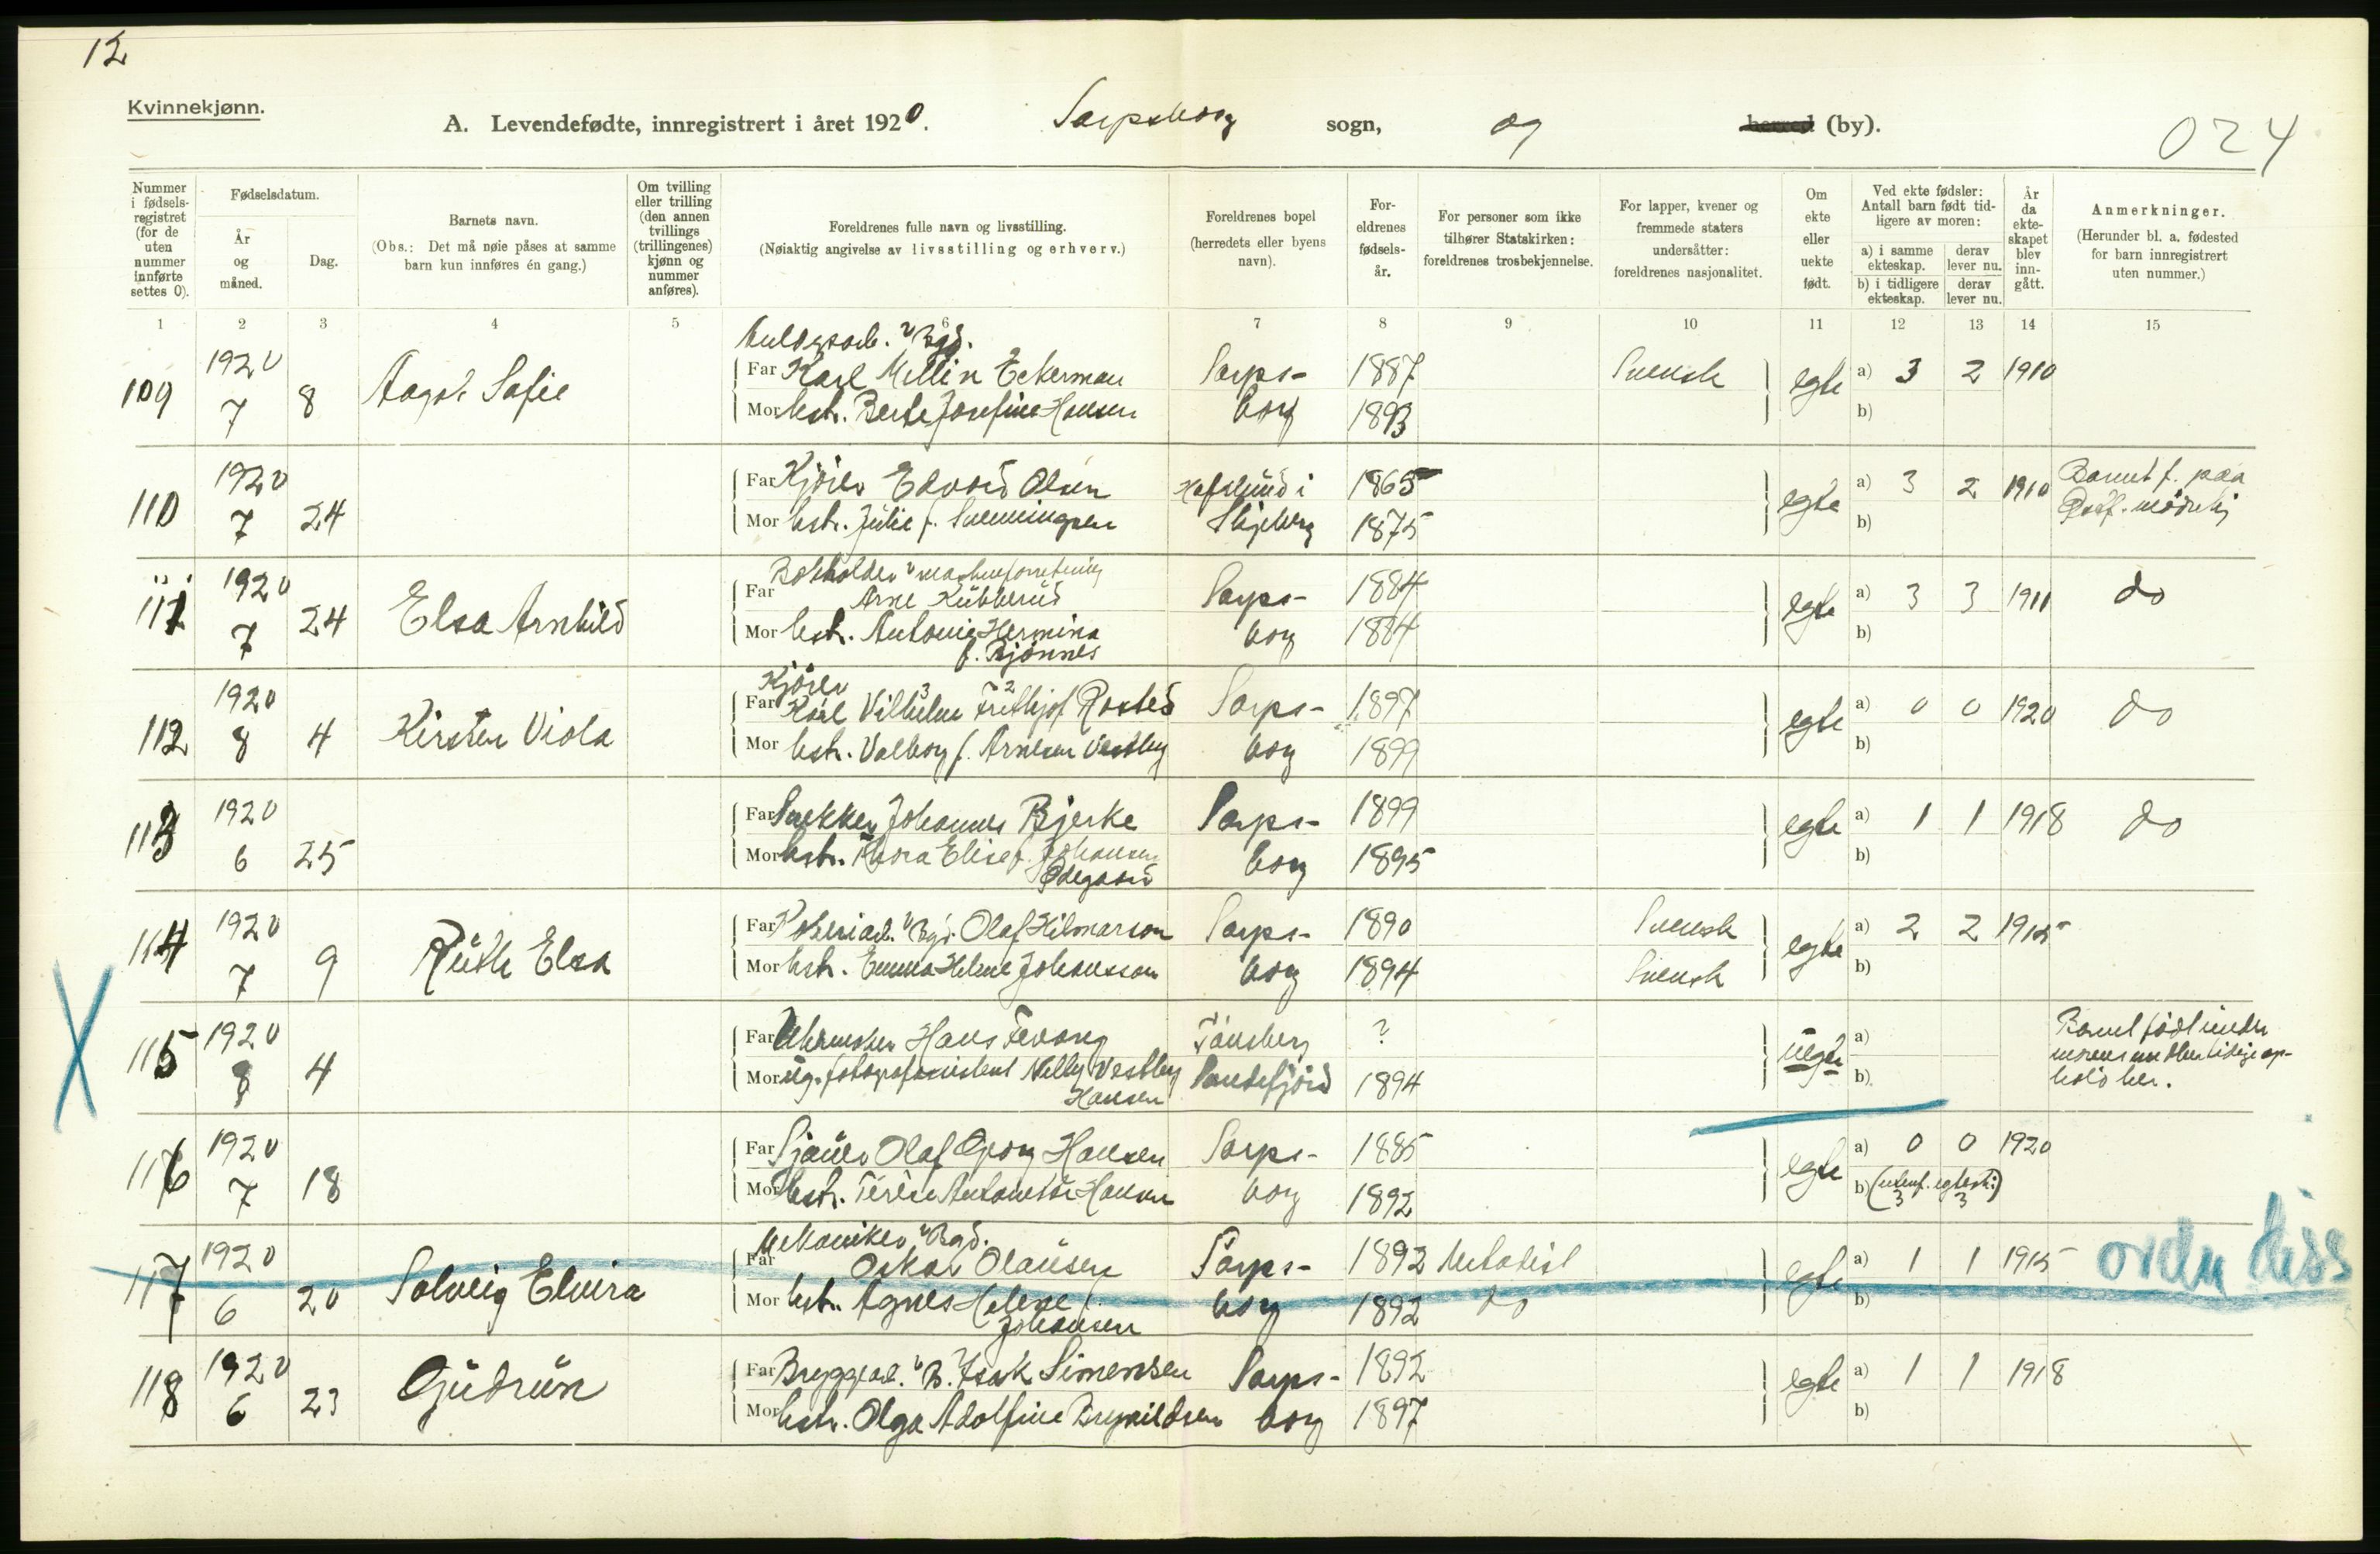 12
Kvinnekjønn.
A. Levendefødte, innregistrert i året 1920. Sarpsborg sogn, og herred (by).
024
Nummer i fødselsregistret (for de uten nummer innførte settes 0).
Fødselsdatum.
År og måned.
Dag.
Barnets navn.
(Obs.: Det må nøie påses at samme barn kun innføres én gang.)
Om tvilling eller trilling (den annen tvillings (trillingenes) kjønn og nummer anføres).
Foreldrenes fulle navn og livsstilling.
(Nøiaktig angivelse av livsstilling og erhverv.)
Foreldrenes bopel (herredets eller byens navn).
Foreldrenes fødselsår.
For personer som ikke tilhører Statskirken: foreldrenes trosbekjennelse.
For lapper, kvener og fremmede staters undersåtter: foreldrenes nasjonalitet.
Om ekte eller uekte født.
Ved ekte fødsler: Antall barn født tidligere av moren:
a) i samme ekteskap.
derav lever nu.
b) i tidligere ekteskap.
derav lever nu.
År da ekteskapet blev inngått.
Anmerkninger.
(Herunder bl. a. fødested for barn innregistrert uten nummer.)
1 2 3 4 5 6 7 8 9 10 11 12 13 14 15
Anlægsarb. v Bgd.
109 1920 7 8 Aagot Sofie Far Karl Mellin Eckerman Sarps- 1887 Svensk egte a) 3 2 1910
Mor hstr. Berte Josefine Hansen borg 1893 b)
110 1920 7 24 Far Kjører Edvard Olsen Hafslund i 1865 egte a) 3 2 1910 Barnet f. paa
Mor hstr. Julie f. Svenningsen Skjeberg 1875 b)
111 1920 7 24 Elsa Arnhild Bokholder v
Far Arne Kubberud Sarps- 1884 egte a) 3 3 1911 do
Mor hstr. Antonie Hermina borg 1884 b)
f. Bjønnes
Kjører
112 1920 8 4 Kirsten Viola Far Karl Vilhelm 3 Frithjof 2 Rosted Sarps- 1897 egte a) 0 0 1920 do
Mor hstr. Valborg f. Arnesen Vestby borg 1899 b)
113 1920 6 25 Far Snekker Johannes Bjerke Sarps- 1899 egte a) 1 1 1918 do
Mor hstr. Thora Elise f. Johansen borg 1895 b)
Ødegaard
114 1920 7 9 Ruth Elsa Far v Bgd. Olaf Hilmarson Sarps- 1890 Svensk egte a) 2 2 1915
Mor hstr. Emma Helene Johansson borg 1894 Svensk b)
115 1920 8 4 Far Uhrmaker Hans Tønsberg ? uegte a) Barnet født under
Mor ug. fotografassistent Nelly Vestby Sandefjord 1894 b) morens midlertidige op-
Hansen hold her.
116 1920 7 18 Far Sjauer Olaf Georg Hansen Sarps- 1885 egte a) 0 0 1920
Mor hstr. Hansen borg 1892 b) (utenf. egtesk:)
3 3
Mekaniker v Bgd.
117 1920 6 20 Solveig Elvira Far Oskar Olausen Sarps- 1892 Metodist egte a) 1 1 1915 orden diss
Mor hstr. Agnes Helene f. borg 1892 do b)
Johansen
118 1920 6 23 Gudrun Far Bryggearb. v B. Isak Simensen Sarps- 1892 egte a) 1 1 1918
Mor hstr. Olga Adolfine Brynildsen borg 1897 b)